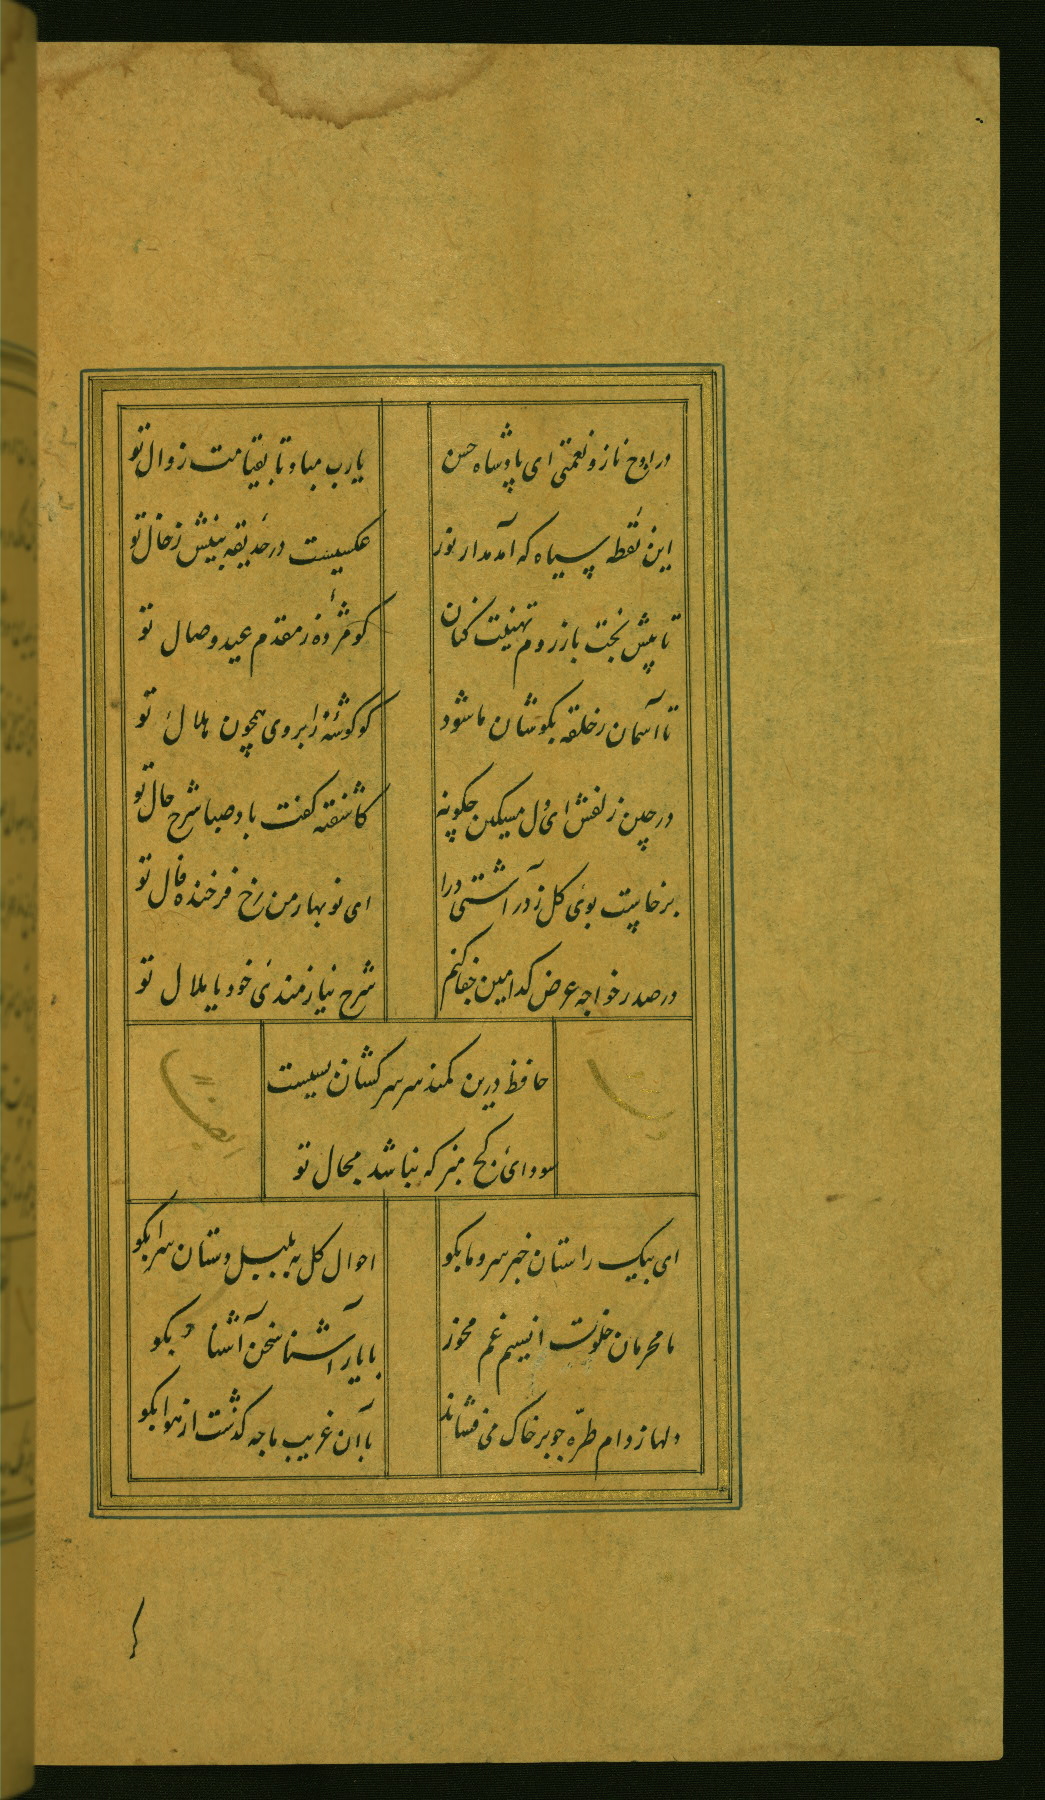 در اوج ناز و نعمتی ای پادشاه حسن
یارب مباد تا بقیامت زوال تو
این نقطه سیاه که آمد مدار نور
عکسیست در حدیقه بینش ز خال تو
تا پیش بخت باز روم تهنیت کنان
کو مژده ز مقدم عید وصال تو
تا آسمان ز حلقه بکوشان ما شود
کو کوشه ز ابروی همچون هلال تو
در چین زلفش ای دل مسکین چکونه
کاشفته کفت باد صبا شرح حال تو
برخاست بوی کل ز در آشتی درا
ای نو بهار من رخ فرخنده فال تو
در صدر خواجه عرض کدامین جفا کنم
شرح نیازمندی خود یا ملال تو
حافظ درین کمند سر سرکشان بسیست
سودای کج مبز که نباشد مجال تو
ای پیک راستان خبر سرو ما بکو
احوال کل به بلبل دستان سرا بکو
ما محرمان خلوت انسیم غم مخور
با یار آشنا سخن آشنا بکو
دلها ز دام طره چو بر خاک می فشاند
با آن غریب ما چه کذشت از هوا بکو